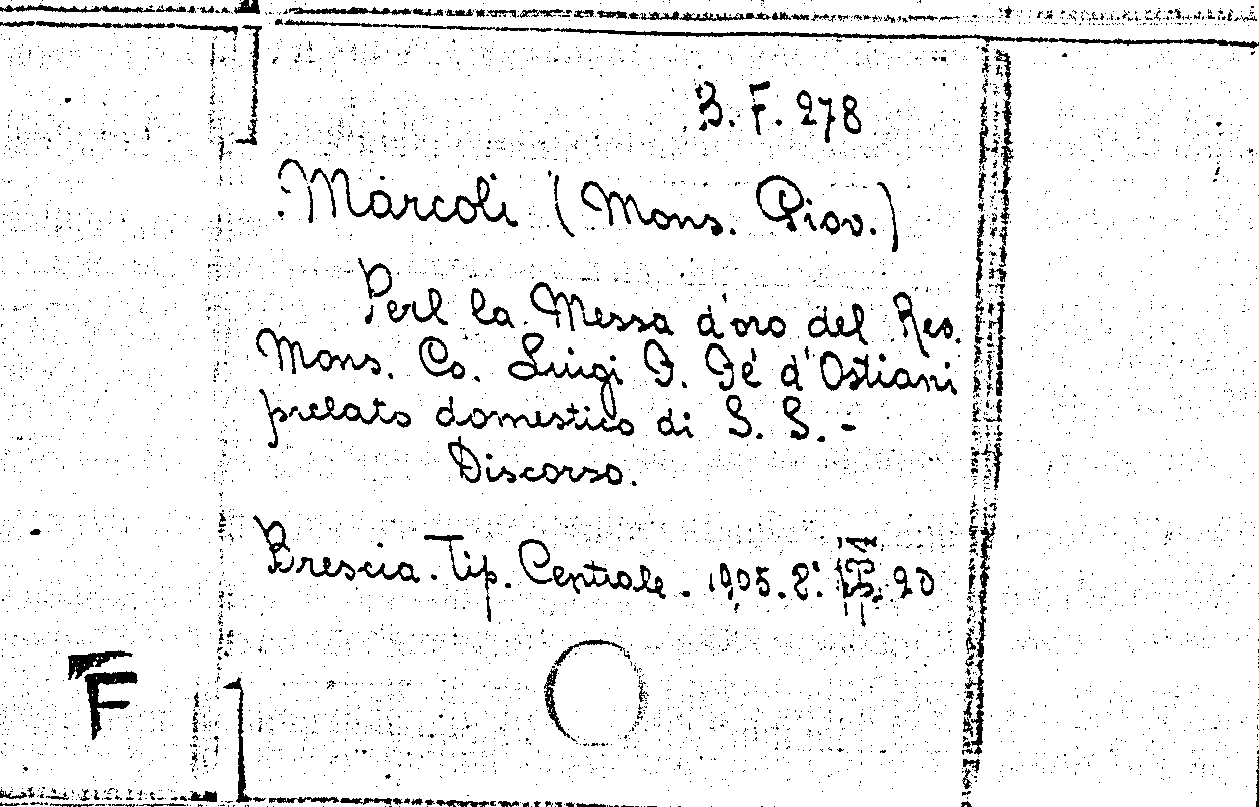 B. F. 278
Marcoli (Mons. Giov.)
Perl la Messa d'oro del Rev.
Mons. Co. Luigi F. Fé d'Ostiani
prelato domestico di S. S. -
Discorso.
Brescia. Tip. Centrale. 1905. 8º. 20
F